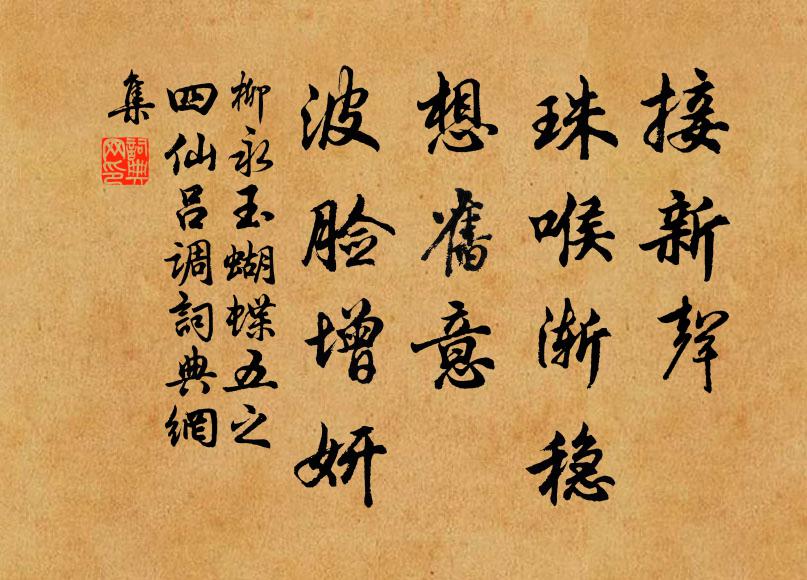 接新聲
珠喉渐稳
想舊意
波脸增妍
柳永玉蝴蝶五之
四仙吕调詞典網
集
詞典
网印